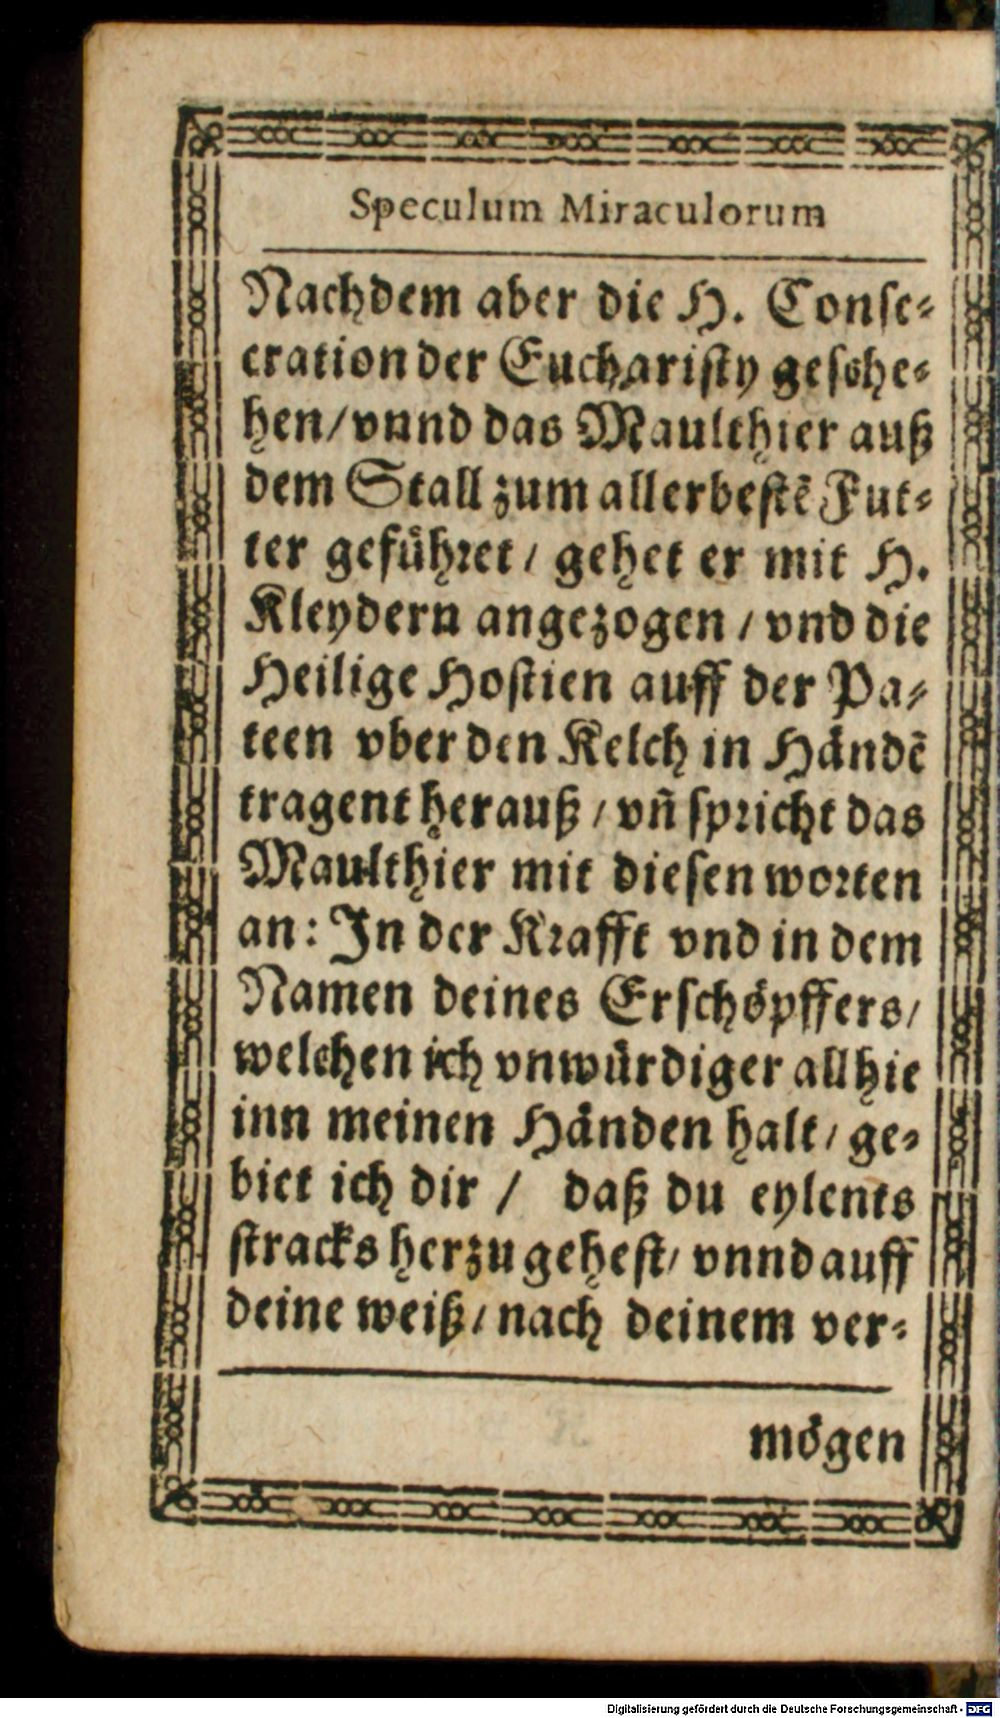 Speculum Miraculorum
Nachdem aber die H. Conse-
cration der Eucharisty gesche-
hen/ vnnd das Maulthier auß
dem Stall zum allerbestẽ Fut-
ter geführet/ gehet er mit H.
Kleydern angezogen/ vnd die
Heilige Hostien auff der Pa-
teen vber den Kelch in Händẽ
tragent herauß/ vñ spricht das
Maulthier mit diesen worten
an: In der Krafft vnd in dem
Namen deines Erschöpffers/
welchen ich vnwürdiger allhie
inn meinen Händen halt/ ge-
biet ich dir / daß du eylents
stracks herzu gehest/ vnnd auff
deine weiß/ nach deinem ver-
mögen
Digitalisierung gefördert durch die Deutsche Forschungsgemeinschaft - DFG